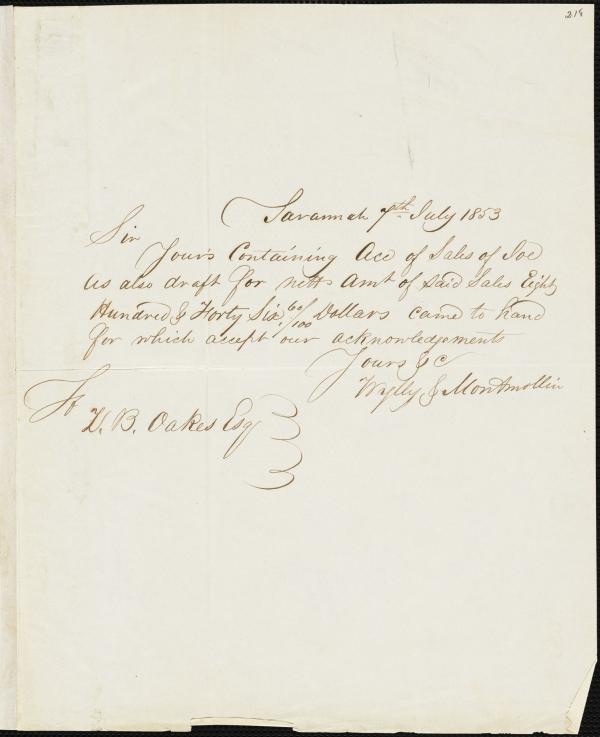 219
Savannah 7th July 1853
Sir
Yours Containing Acc of Sales of Joe
As also draft for nett Amt of said Sales Eighty
Hundred & Forty Six 60/100 Dollars came to hand
for which accept our acknowledgements
Yours &c
Wylly & Montmollin
To
Z. B. Oakes Esq